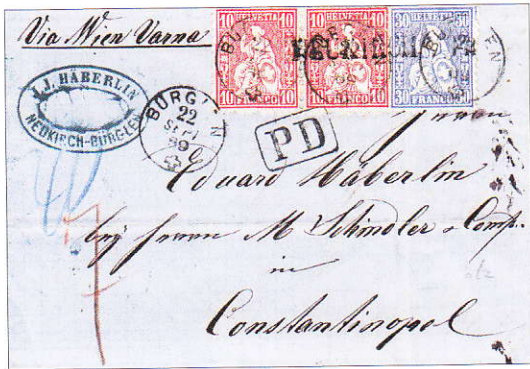 Via Wien Varna
10 HELVETIA 10
10 FRANCO 10
10 HELVETIA 10
10 FRANCO 10
30 HELVETIA 30
30 FRANCO 30
J.J. HÄBERLIN
NEUKIRCH-BÜRGLEN
BÜRGLEN
22
SEPT
69
PD
Herrn
Eduard Häberlin
bey Herrn M Schindler & Comp.
in
Constantinopel